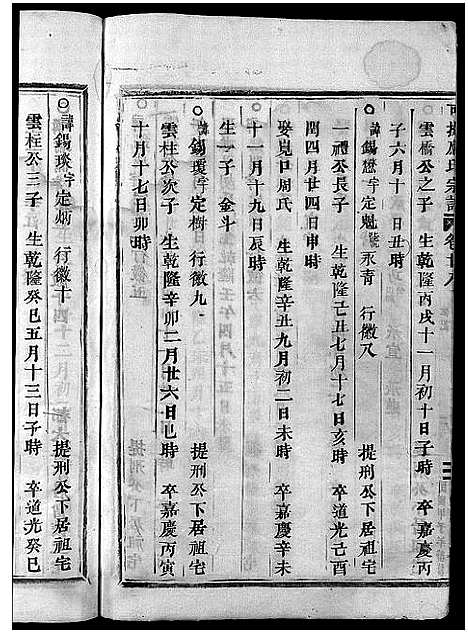 宗譜 卷廿八
雲橋公之子 生乾隆丙戌十一月初十日子時 卒嘉慶丙
子六月十日丑時
諱錫懋字定魁號永青 行徽八 提刑公下居祖宅
一禮公長子 生乾隆己丑七月十七日亥時 卒道光己酉
閏四月廿四日申時
娶見口周氏 生乾隆辛丑九月初二日未時 卒嘉慶辛未
十一月十九日辰時
生一子 金斗
諱錫瓊字定樹 行徽九 提刑公下居祖宅
雲柱公次子 生乾隆辛卯二月廿六日巳時 卒嘉慶丙寅
十月十七日卯時
諱錫琰字定炳 行徽十 提刑公下居祖宅
雲柱公三子 生乾隆癸巳五月十三日子時 卒道光癸巳